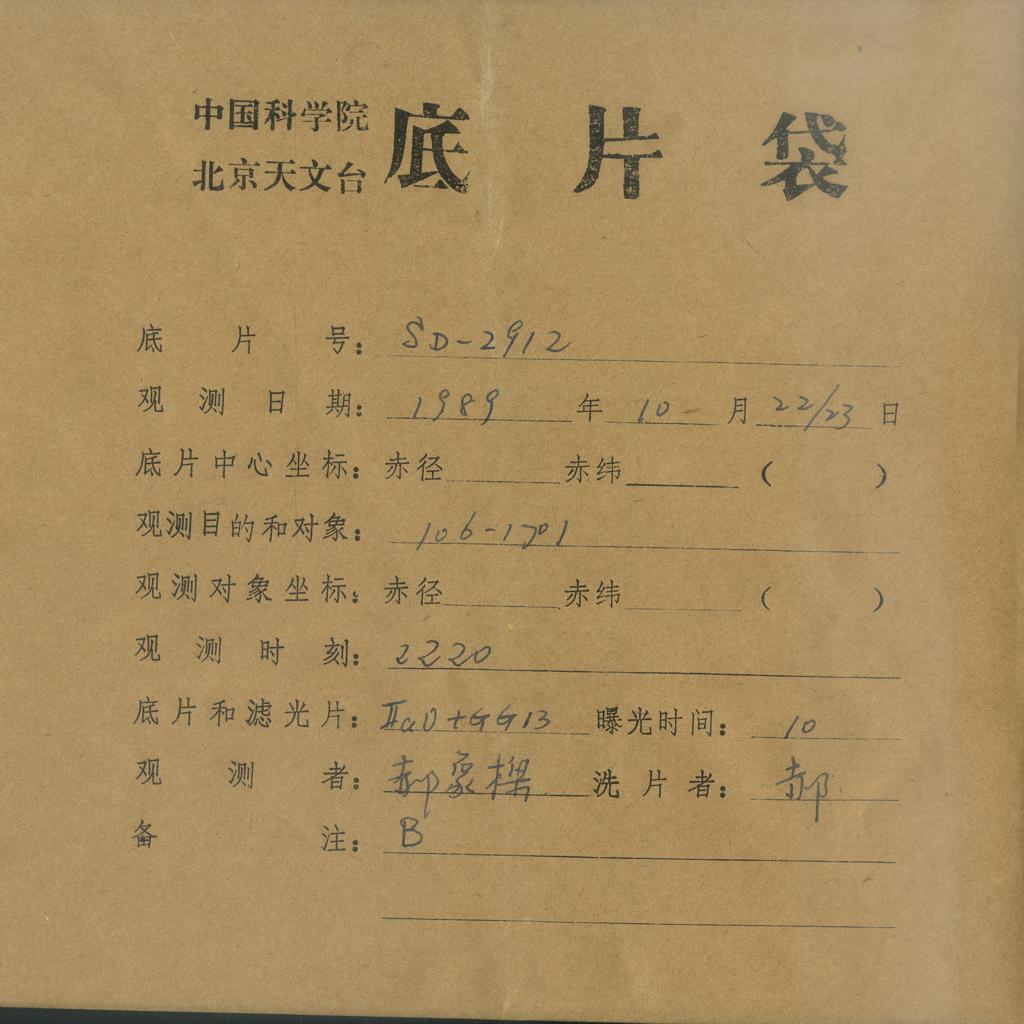 中国科学院
北京天文台 底片袋
底片号：SD-2912
观测日期：1989年10月22/23日
底片中心坐标：赤径 赤纬 （ ）
观测目的和对象：106-1701
观测对象坐标：赤径 赤纬 （ ）
观测时刻：2220
底片和滤光片：IIaO+GG13 曝光时间：10
观测者：郝象樑 洗片者：郝
备注：B